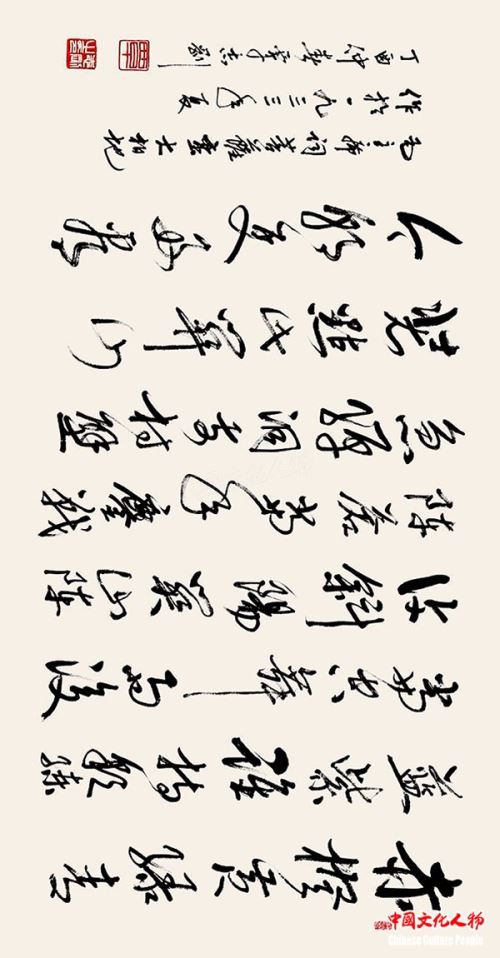 赤橙黄绿青
蓝紫谁持彩练
當空舞雨後
復斜陽關山陣
陣蒼當年鏖戰
急彈洞前村壁
裝點此關山
今朝更好看
毛主席词菩薩蠻大柏地
作於一九三三年夏
丁酉仲春
中國文化人物
Chinese Culture People